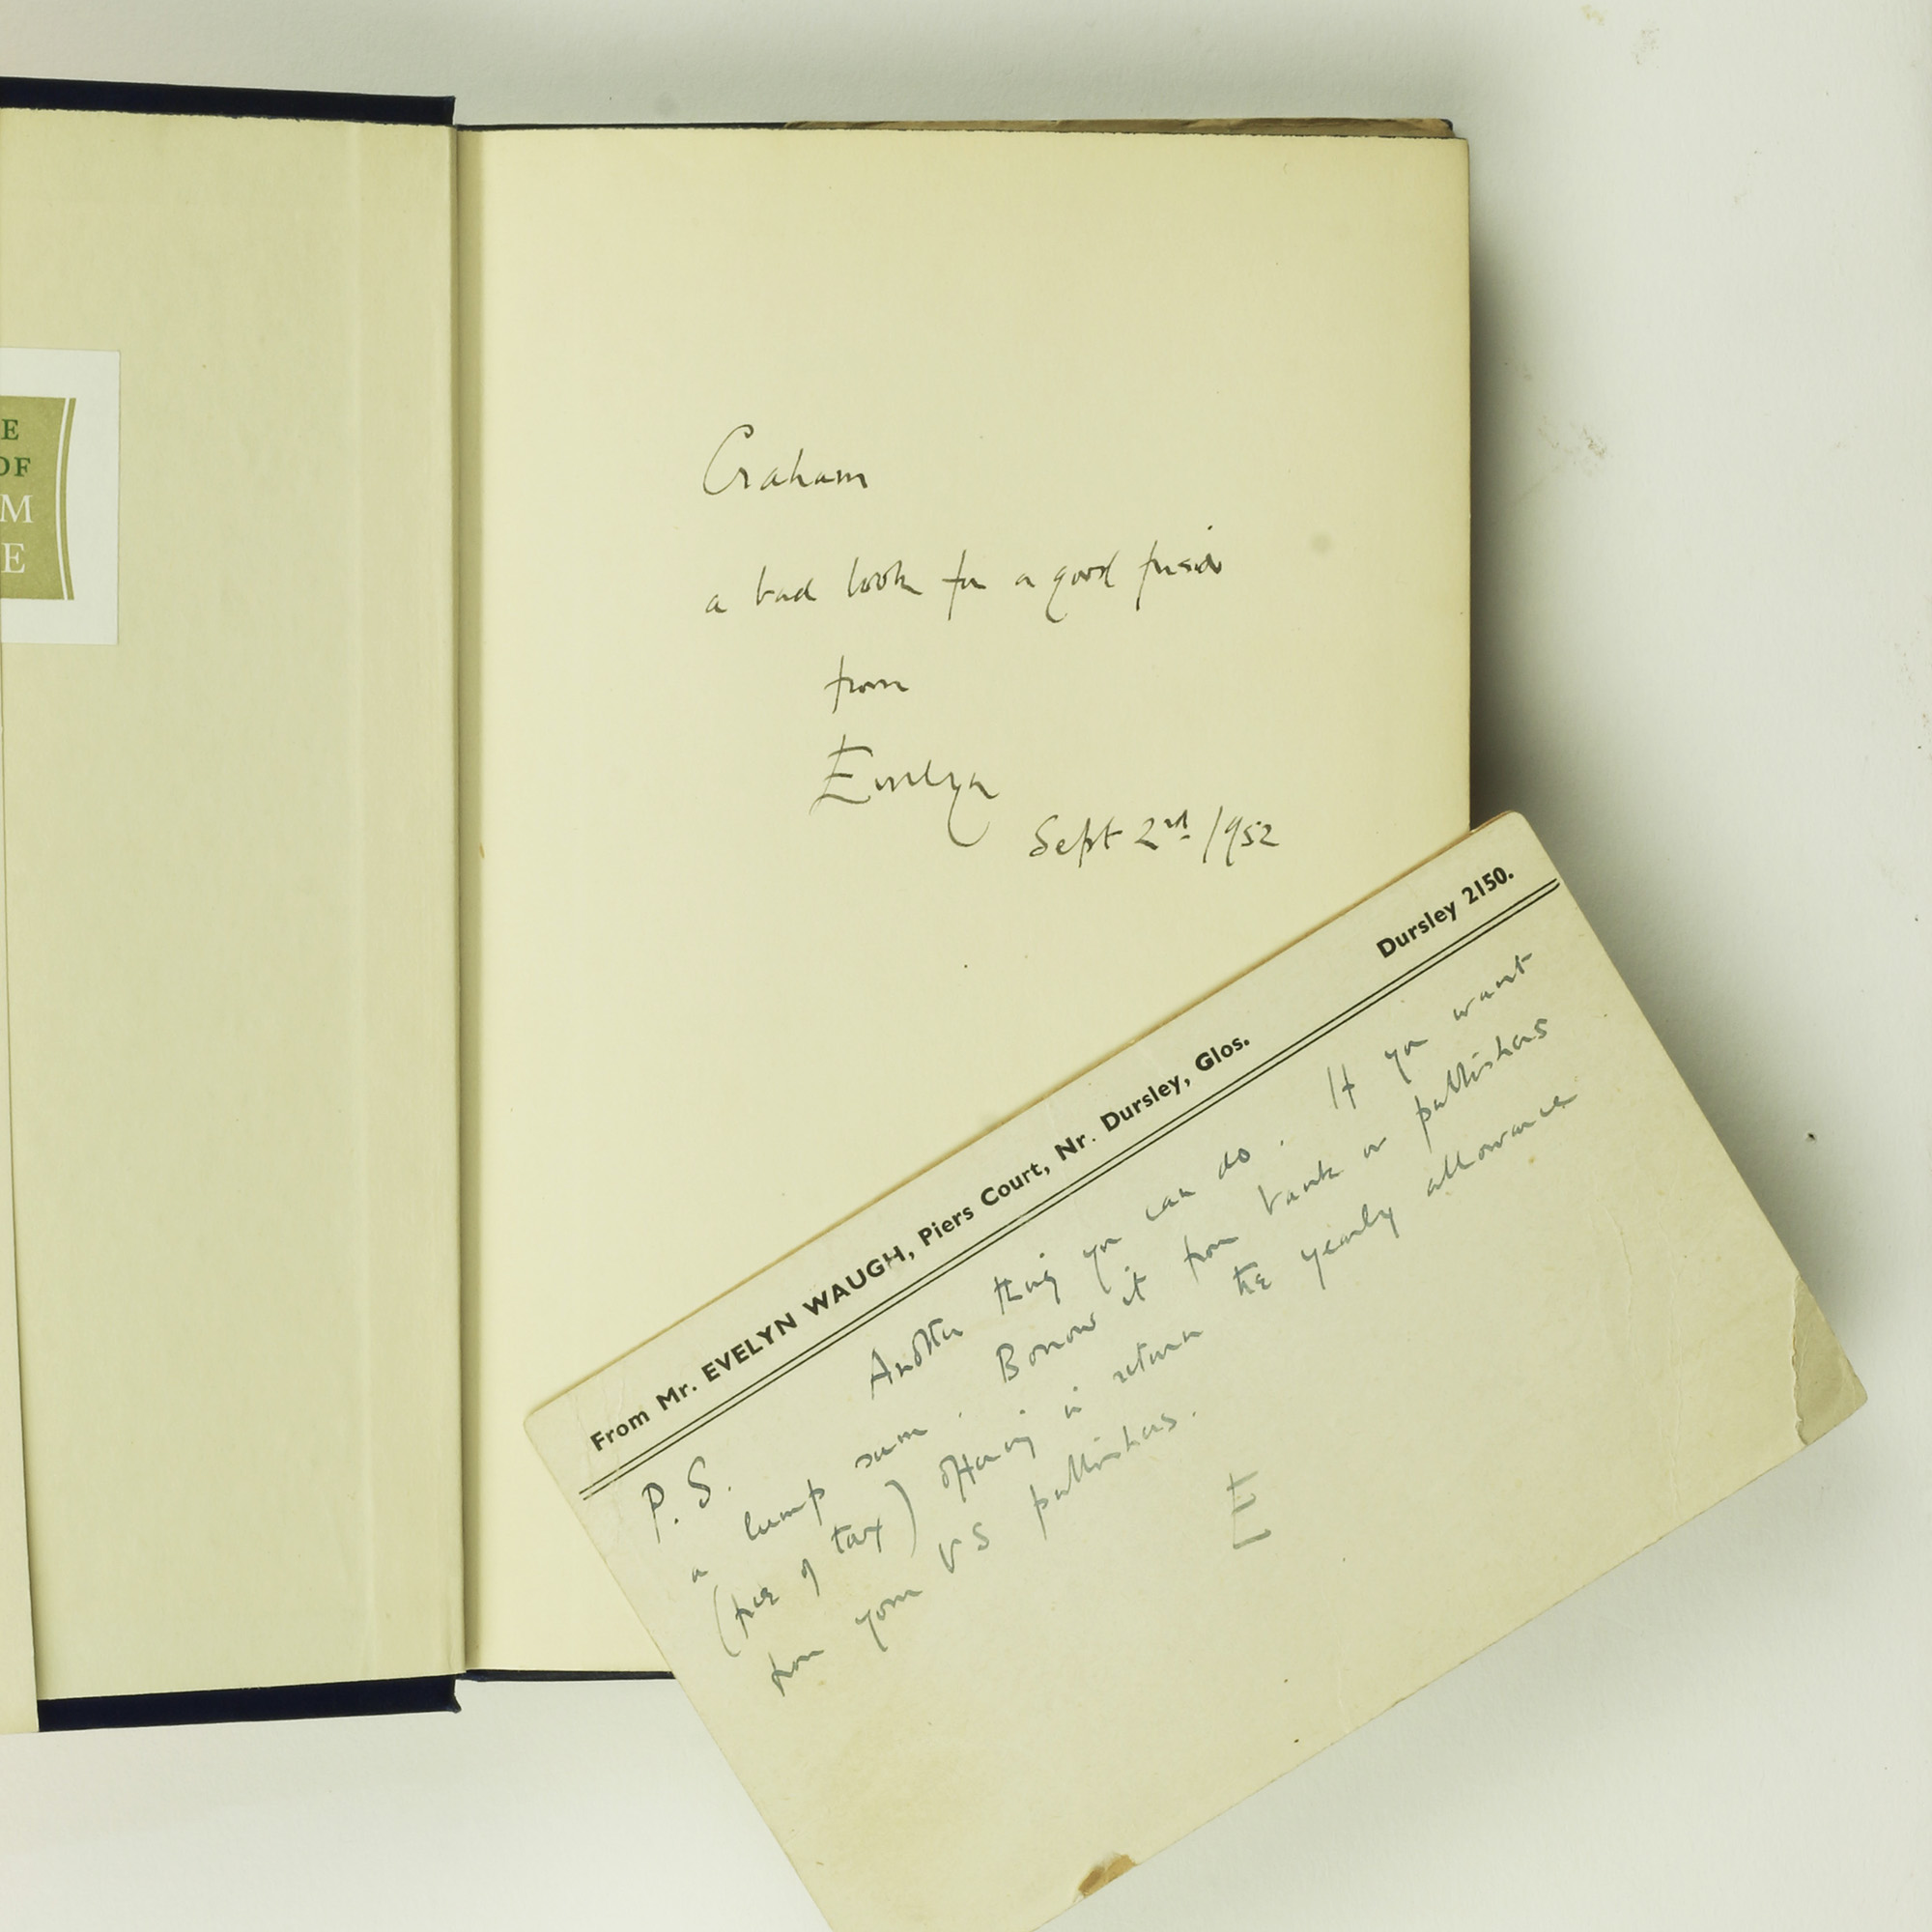 E
OF
M
E
Graham
a bad book for a good friend
from
Evelyn
Sept 2nd 1952
From Mr. EVELYN WAUGH, Piers Court, Nr. Dursley, Glos. Dursley 2150.
P.S. Another thing you can do. If you want
a lump sum. Borrow it from bank or publishers
(free of tax) offering in return the yearly allowance
from your US publishers.
E